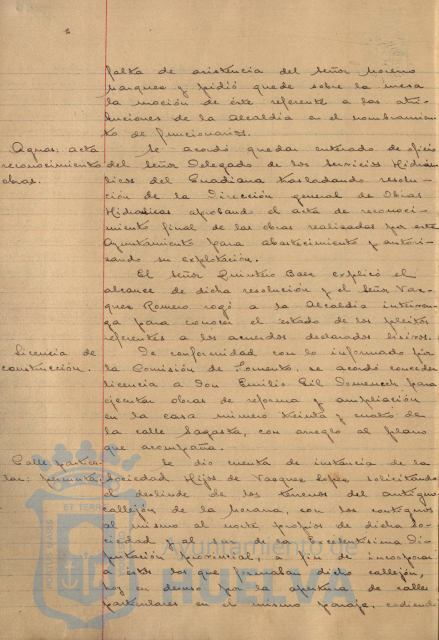 falta de asistencia del Señor Moreno
Marquez y pidió quede sobre la mesa
la moción de éste referente a las atri-
buciones de la Alcaldia en el nombramien-
to de funcionarios.
Aguas: acta
reconocimiento
obras.
Se acordó quedar enterado de oficio
del Señor Delegado de los Servicios Hidráu-
licos del Guadiana trasladando resolu-
ción de la Dirección general de Obras
Hidraulicas aprobando el acta de reconoci-
miento final de las obras realizadas por este
Ayuntamiento para abastecimiento y autori-
zando su explotación.
El Señor Quintero Baez explicó el
alcance de dicha resolución y el Señor Vaz-
quez Romero rogó a la Alcaldia interven-
ga para conocer el estado de los pleitos
referentes a los acuerdos declarados lesivos.
Licencia de
construcción.
De conformidad con lo informado por
la Comisión de Fomento, se acordó conceder
licencia a Don Emilio Gil Domenech para
ejecutar obras de reforma y ampliación
en la casa número treinta y cuatro de
la calle Sagasta, con arreglo al plano
que acompaña.
Calle particu-
lar: permuta.
Se dio cuenta de instancia de la
Sociedad Hijos de Vazquez Lopez solicitando
el deslinde de los terrenos del antiguo
callejón de la Morana, con los contiguos
al mismo al norte propios de dicha So-
ciedad y al sur de la Excelentísima Di-
putación Provincial, a fin de incorporar
a éstos los que formaban dicho callejón,
hoy en desuso por la apertura de calles
particulares en el mismo paraje, cediendo
AYUNTAMIENTO DE
HUELVA